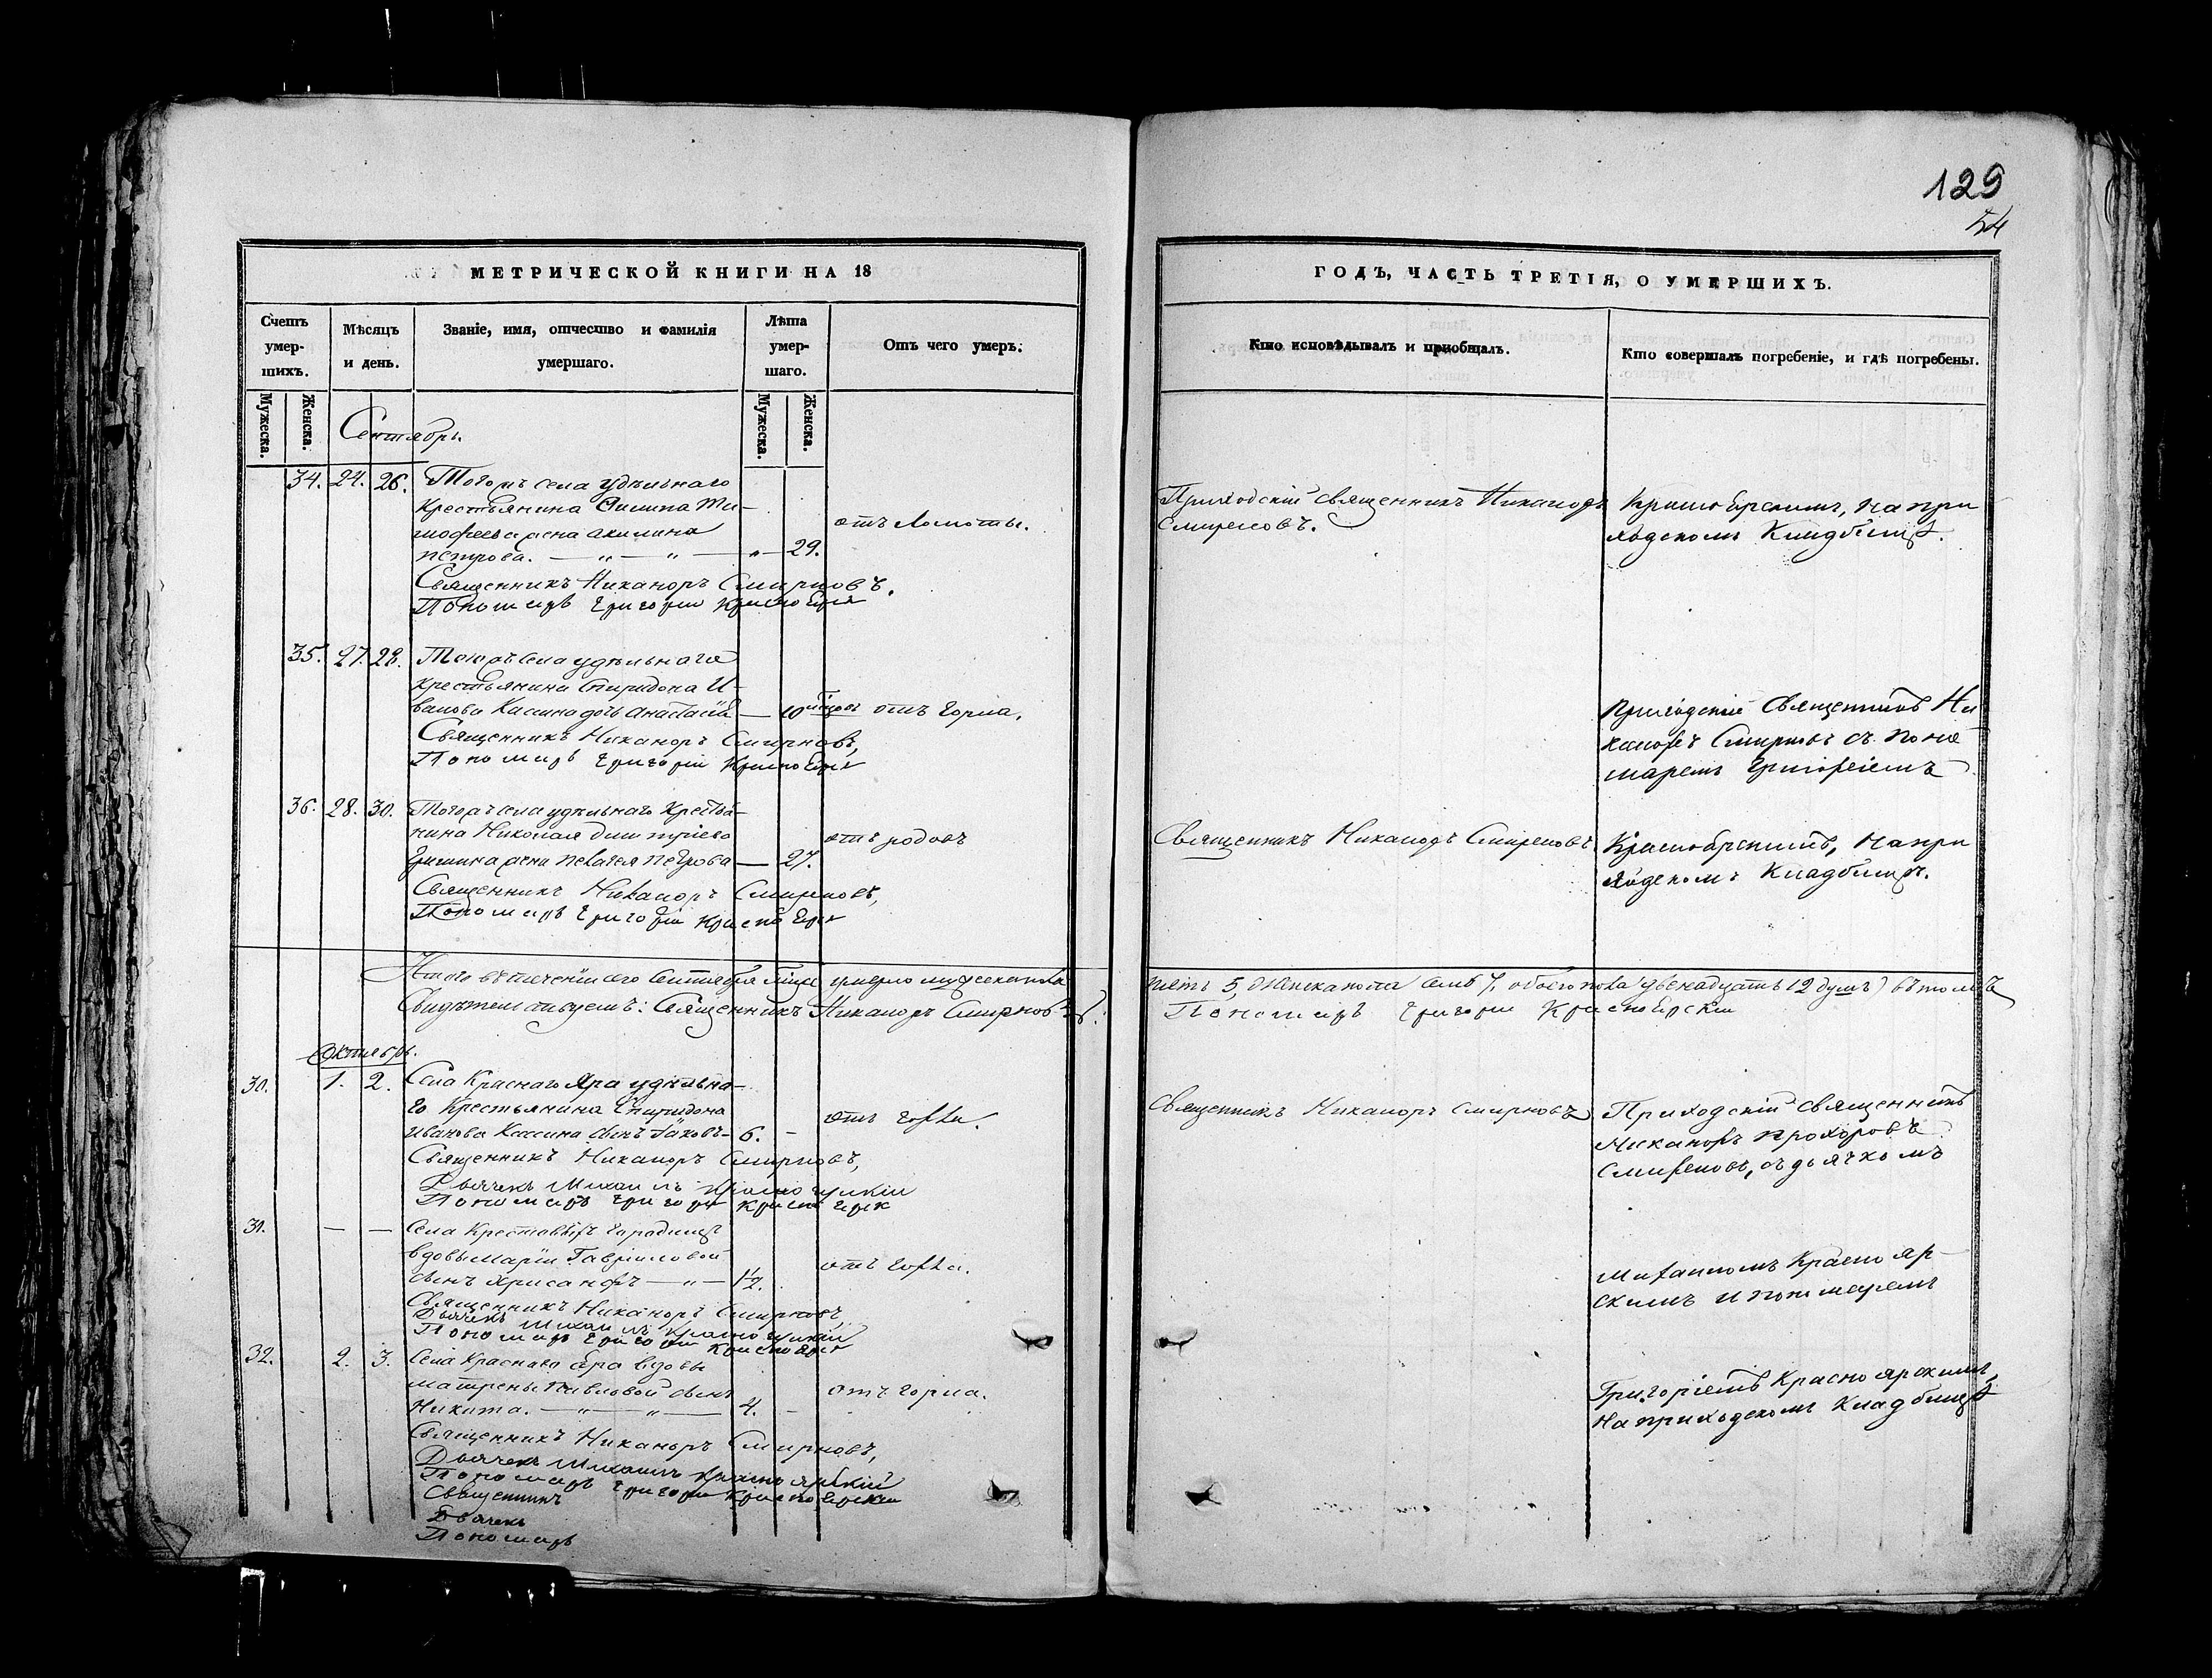 129
54
МЕТРИЧЕСКОЙ КНИГИ НА 18
Счетъ умер-шихъ.
Мѣсяцъ и день.
Званіе, имя, отчество и фамилія умершаго.
Лѣта умер-шаго.
Отъ чего умеръ.
Мужеска.
Женска.
Мужеска.
Женска.
Сентябрь.
34. 24. 26. Тогожъ села удѣльнаго
крестьянина Филипа Ти-
мофеева жена Акилина
Петрова. — „ — „ — „ — 29. отъ ломоты.
Священникъ Никаноръ Смирновъ.
Пономарь Григорій
35. 27. 28. Тогожъ села удѣльнаго
крестьянина Спиридона И-
ванова Касина дочь Анастасія — 10 мѣсяц. отъ горла.
Священникъ Никаноръ Смирновъ,
Пономарь Григорій
36. 28. 30. Тогожъ села удѣльнаго кресть-
нина Николая Димитріева
Гришина жена Пелагея Петрова — 27. отъ родовъ
Священникъ Никаноръ Смирновъ,
Пономарь Григорій
Итого въ теченіи сего Сентября мѣсяца умерло мужеска пола
Свидѣтельствуемъ: Священникъ Никаноръ Смирновъ.
Октябрь.
30. 1. 2. Села Краснаго Яра удѣльна-
го крестьянина Спиридона
Иванова Касина сынъ Іаковъ — 6. — отъ горла.
Священникъ Никаноръ Смирновъ,
Дьячекъ Михаилъ Красноярскій
Пономарь Григорій
31. — — Села Крестовыхъ Городищъ
вдовы Маріи Гавриловой
сынъ Хрисанфъ — „ — 1½. отъ горла.
Священникъ Никаноръ Смирновъ,
Дьячекъ Михаилъ Красноярскій
Пономарь Григорій
32. 2. 3. Села Краснаго Яра вдовы
Матрены Павловой сынъ
Никита. — „ — „ — 4. — отъ горла.
Священникъ Никаноръ Смирновъ,
Дьячекъ Михаилъ Красноярскій
Пономарь Григорій Красноярскій
Священникъ
Дьячекъ
Пономарь
ГОДЪ, ЧАСТЬ ТРЕТІЯ, О УМЕРШИХЪ.
Кто исповѣдывалъ и приобщалъ.
Кто совершалъ погребеніе, и гдѣ погребены.
Приходскій священникъ Никаноръ
Смирновъ.
Красноярскимъ, на при
ходскомъ кладбищѣ.
Приходскій Священникъ Ни
каноръ Смирновъ съ поно
маремъ Григоріемъ
Священникъ Никаноръ Смирновъ.
Красноярскимъ, на при
ходскомъ кладбищѣ.
пять 5, женска пола семь 7, обоего пола двенадцать 12 душъ) въ томъ
Пономарь Григорій Красноярскій
Священникъ Никаноръ Смирновъ
Приходскій священникъ
Никаноръ Прохоровъ
Смирновъ, съ дьячкомъ
Михаиломъ Краснояр-
скимъ и пономаремъ
Григоріемъ Красноярскимъ,
на приходскомъ кладбищѣ